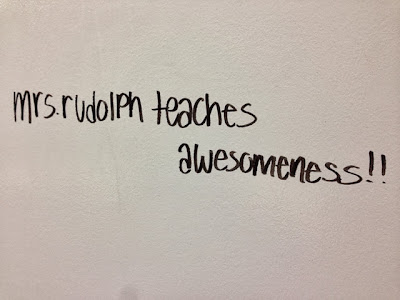 mrs.rudolph teaches
awesomeness!!